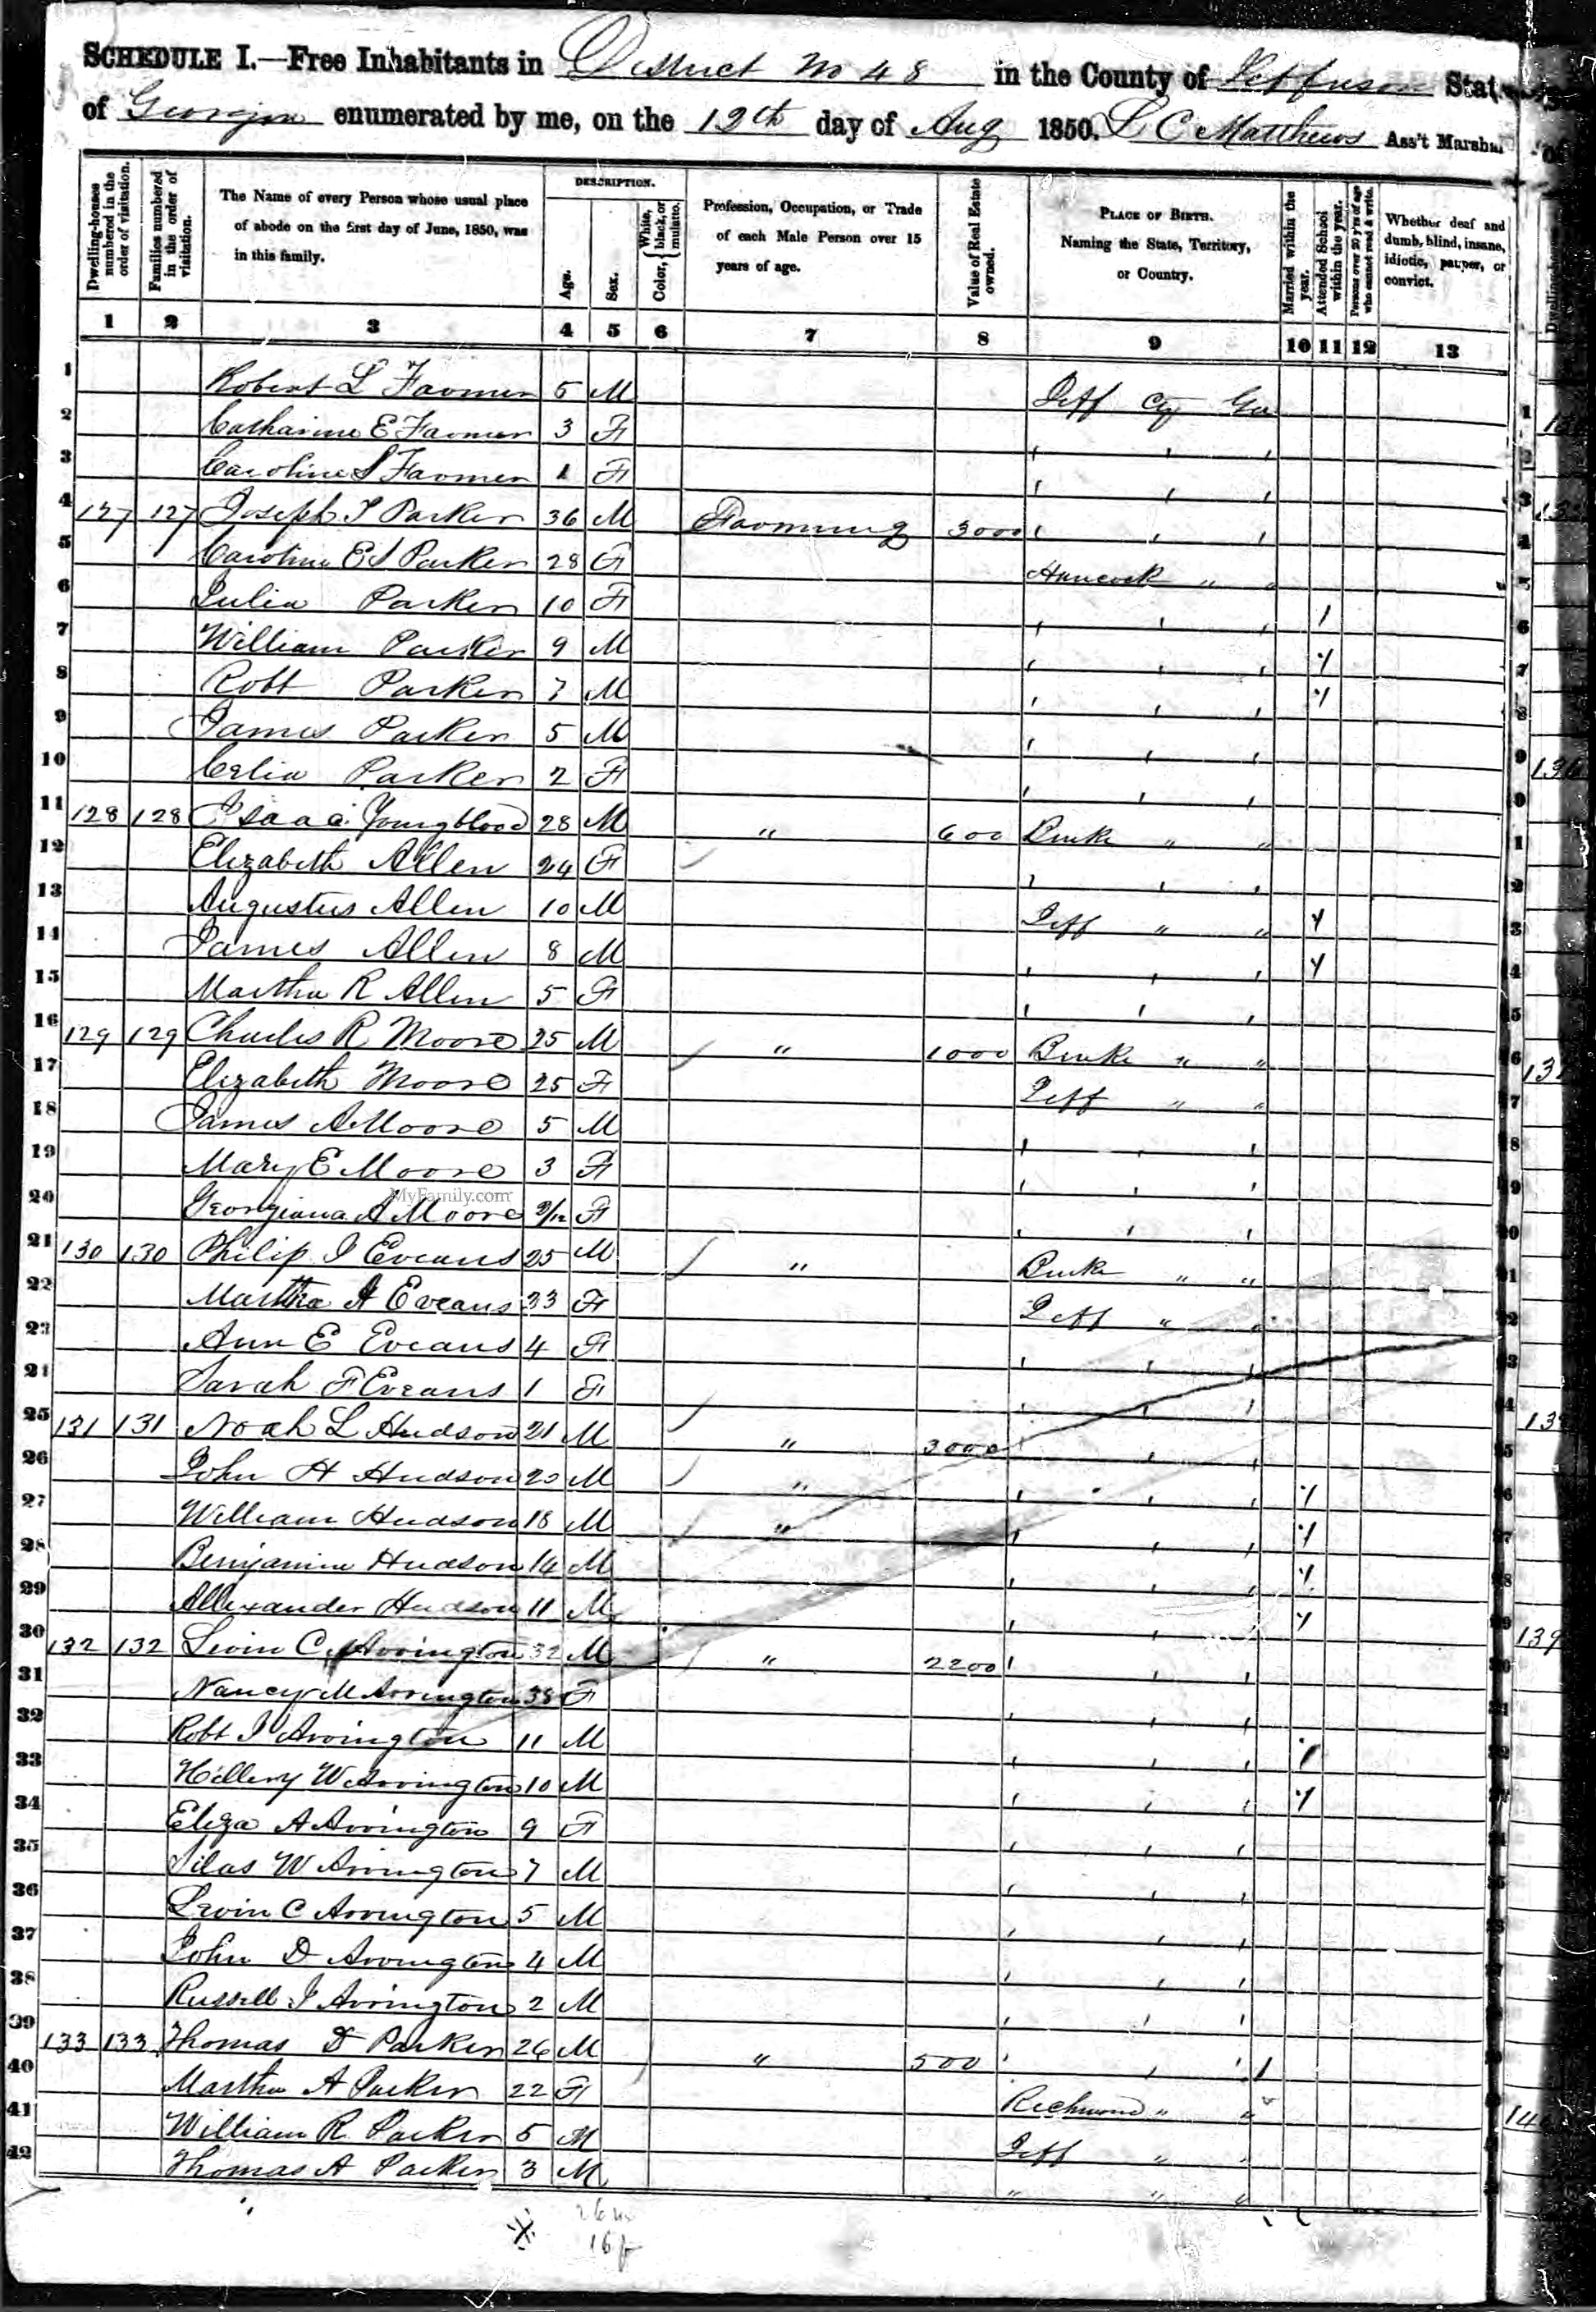 SCHEDULE I.—Free Inhabitants in District No 48 in the County of Jefferson State
of Georgia enumerated by me, on the 19th day of Aug 1850. L C Matthews Ass't Marshal
Dwelling-houses numbered in the order of visitation.
Families numbered in the order of visitation.
The Name of every Person whose usual place of abode on the first day of June, 1850, was in this family.
DESCRIPTION.
Age.
Sex.
Color, { White, black, or mulatto.
Profession, Occupation, or Trade of each Male Person over 15 years of age.
Value of Real Estate owned.
PLACE OF BIRTH. Naming the State, Territory, or Country.
Married within the year.
Attended School within the year.
Persons over 20 y'rs of age who cannot read & write.
Whether deaf and dumb, blind, insane, idiotic, pauper, or convict.
1 2 3 4 5 6 7 8 9 10 11 12 13
1 Robert L Farmer 5 M Jeff Cty Ga
2 Catharine E Farmer 3 F " "
3 Caroline S Farmer 1 F " "
4 127 127 Joseph T Parker 36 M Farming 3000 " "
5 Caroline E S Parker 28 F Hancock " "
6 Julia Parker 10 F " " 1
7 William Parker 9 M " " 1
8 Robt Parker 7 M " " 1
9 James Parker 5 M " "
10 Celia Parker 2 F " "
11 128 128 Isaac Youngblood 28 M " 600 Burke " "
12 Elizabeth Allen 24 F " "
13 Augustus Allen 10 M Jeff " " 1
14 James Allen 8 M " " 1
15 Martha R Allen 5 F " "
16 129 129 Charles R Moore 25 M " 1000 Burke " "
17 Elizabeth Moore 25 F Jeff " "
18 James A Moore 5 M " "
19 Mary E Moore 3 F " "
MyFamily.com
20 Georgiana A Moore 9/12 F " "
21 130 130 Philip J Eveans 25 M " Burke " "
22 Martha A Eveans 23 F Jeff " "
23 Ann E Eveans 4 F " "
24 Sarah F Eveans 1 F " "
25 131 131 Noah L Hudson 21 M " 3000 " "
26 John H Hudson 20 M " " " 1
27 William Hudson 18 M " " " 1
28 Benjamine Hudson 14 M " " 1
29 Allexander Hudson 11 M " " 1
30 132 132 Levin C Arrington 32 M " 2200 " "
31 Nancy M Arrington 38 F " "
32 Robt J Arrington 11 M " " 1
33 Hillery W Arrington 10 M " " 1
34 Eliza A Arrington 9 F " "
35 Silas W Arrington 7 M " "
36 Levin C Arrington 5 M " "
37 John D Arrington 4 M " "
38 Russell J Arrington 2 M " "
39 133 133 Thomas D Parker 26 M " 500 " " 1
40 Martha A Parker 22 F Richmond " "
41 William R Parker 5 M Jeff " "
42 Thomas A Parker 3 M " " "
26 m
16 f